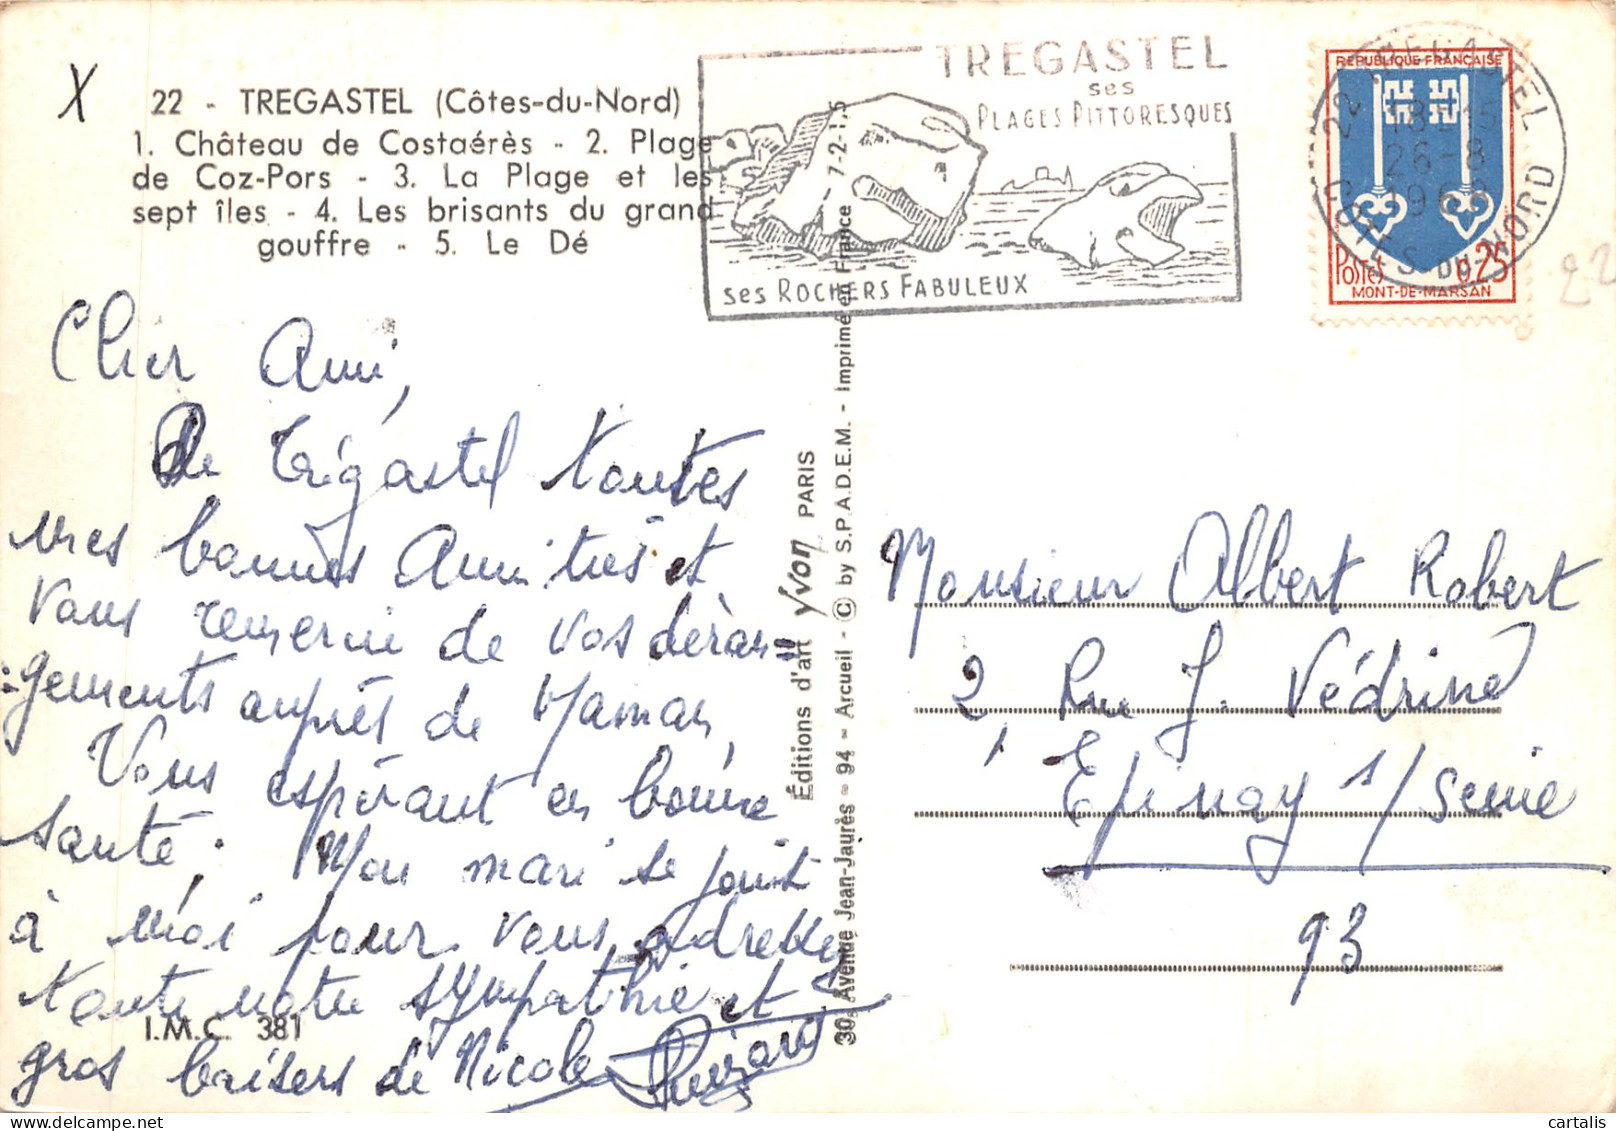 X
22 - TREGASTEL (Côtes-du-Nord)
1. Château de Costaérès - 2. Plage
de Coz-Pors - 3. La Plage et les
sept îles - 4. Les brisants du grand
gouffre - 5. Le Dé
TREGASTEL
ses
PLAGES PITTORESQUES
ses ROCHERS FABULEUX
REPUBLIQUE FRANÇAISE
POSTES 0,25
MONT-DE-MARSAN
22 TREGASTEL
18-15
26-8
196
CÔTES-DU-NORD
22
Cher Ami,
De Trégastel toutes
mes bonnes Amitiés et
vous remercie de vos déran=
=gements auprès de Maman,
Vous espérant en bonne
santé. Mon mari se joint
à moi pour vous adresser
toute notre sympathie et
gros baisers de Nicole
I.M.C. 381
Éditions d'art Yvon PARIS
30, Avenue Jean-Jaurès - 94 - Arcueil - © by S.P.A.D.E.M. - Imprimé en France - 7-2-1,5
Monsieur Albert Robert
2, Rue J. Védrine
Epinay s/Seine
93
cartalis